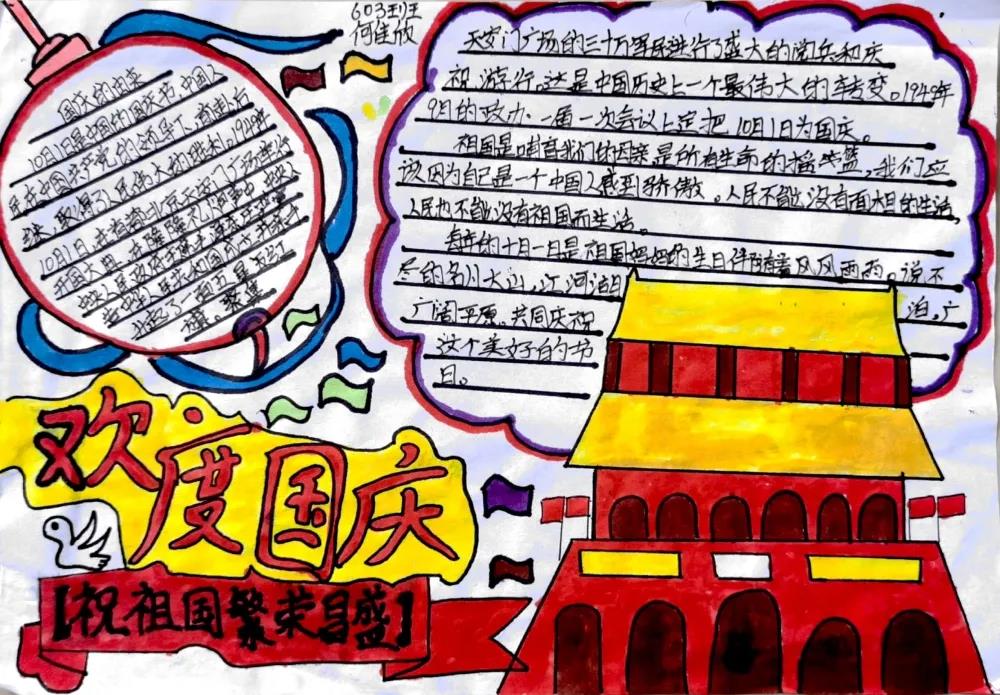 603班
何佳欣
国庆的由来
10月1日是中国的国庆节,中国人
民在中国共产党的领导下,前赴后
继,取得了人民伟大的胜利。1949年
10月1日,在首都北京天安门广场举行
开国大典,在隆隆礼
天安门广场的三十万军民进行了盛大的阅兵和庆
祝游行。这是中国历史上一个最伟大的转变。1949年
9月的政协.一届一次会议上定把10月1日为国庆。
祖国是哺育我们的母亲是所有生命的摇篮,我们应
该因为自己是一个中国人感到骄傲。人民不能没有面目的生活,
人民也不能没有祖国而生活。
每年的十月一日是祖国妈妈的生日伴随着风风雨雨。说不
尽的名川大山,江河湖泊 泊。广
广阔平原。共同庆祝
这个美好的节
日。
欢度国庆
【祝祖国繁荣昌盛】